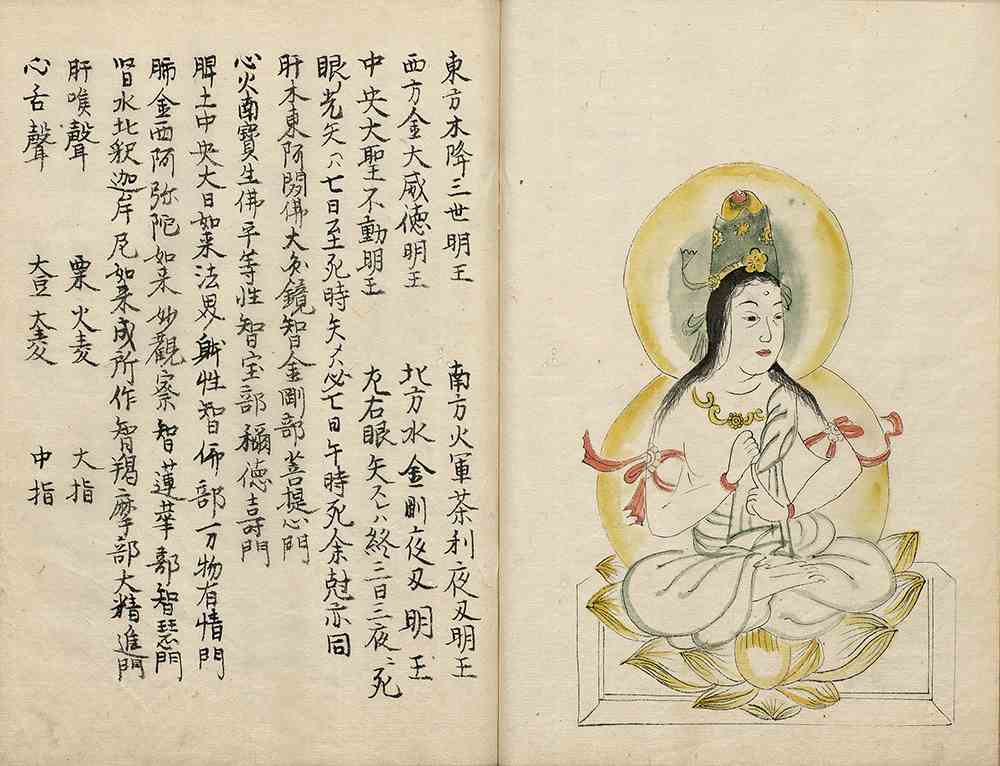 東方木降三世明王　南方火軍荼利夜叉明王
西方金大威徳明王　北方水金剛夜叉明王
中央大聖不動明王　左右眼矢スレハ終三日三夜ニ死
眼光矢ハ七日至死時矢ハ必七日午時死余尅亦同
肝木東阿閦佛大圓鏡智金剛部菩提心門
心火南寶生佛平等性智宝部福徳壽門
脾土中央大日如来法界躰性智佛部万物有情門
肺金西阿弥陀如来妙觀察智蓮華部智慧門
腎水北釈迦牟尼如来成所作智羯摩部大精進門
肝喉聲　粟大麦　大指
心舌聲　大豆大麦　中指